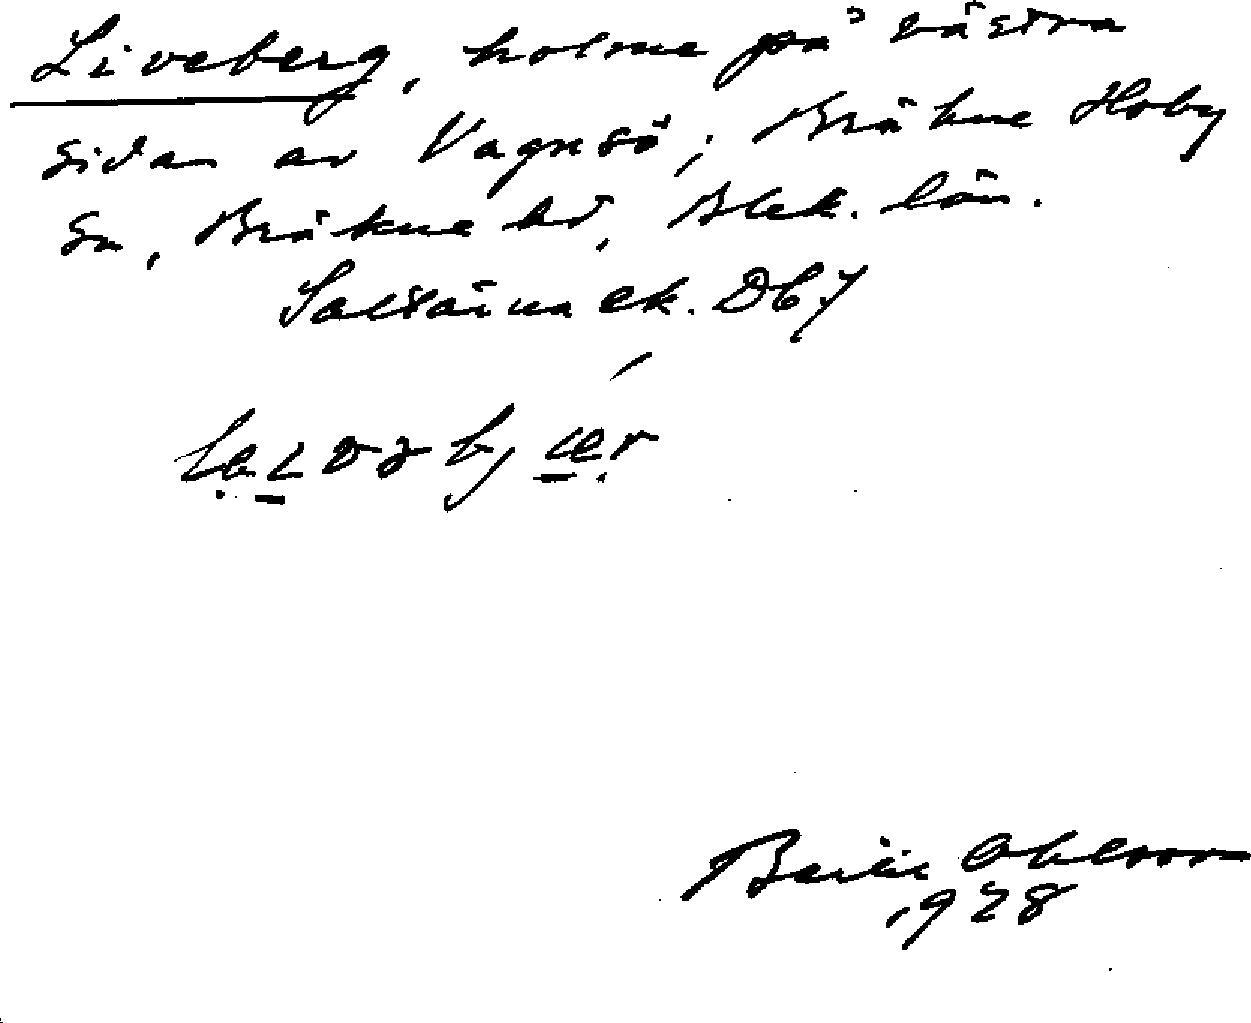 Liveberg, holme på västra
sidan av Vagnsö; Bräkne Hoby
sn, Bräkne hd, Blek. län.
Saltsärna ek. Db7
Bertil Ohlsson
1928